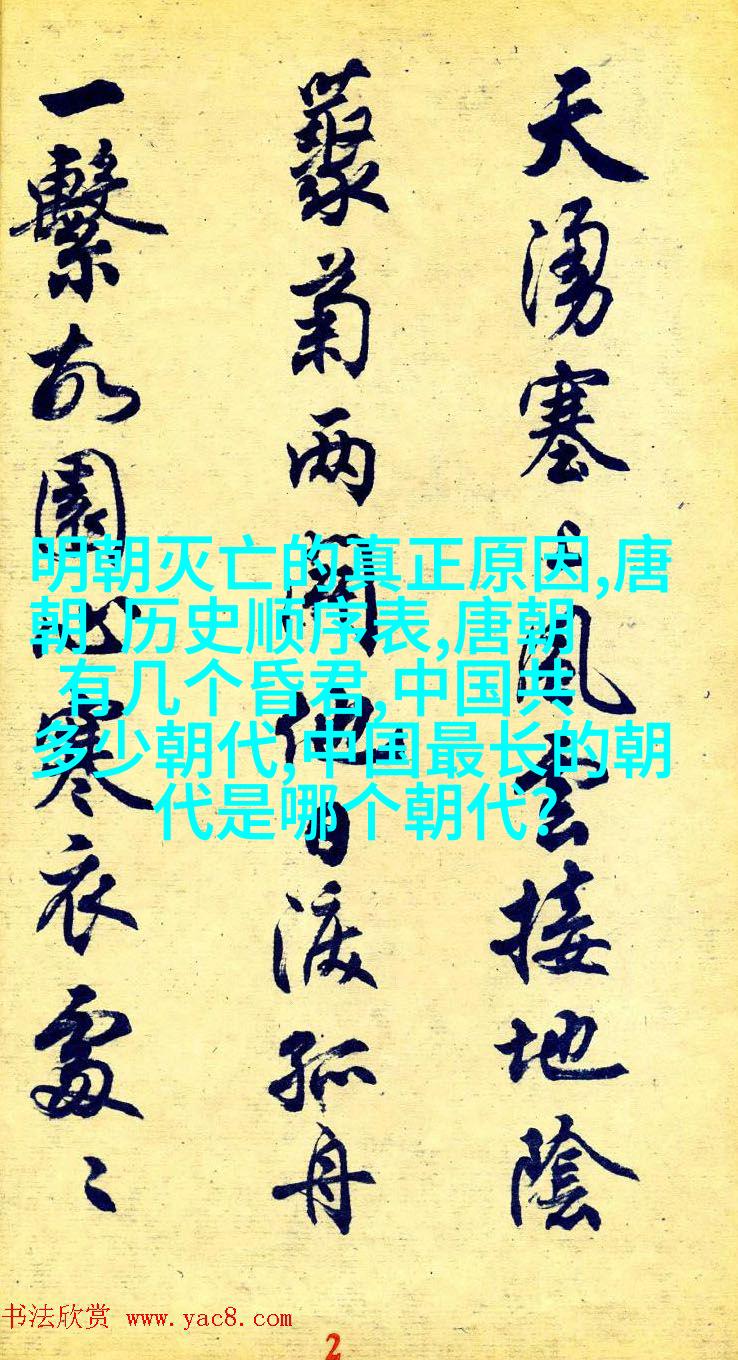 天湧塞上風雲接地陰
叢菊两開他日淚孤舟
一繫故園心寒衣處〻
明朝灭亡的真正原因,唐
朝 历史顺序表,唐朝
有几个昏君,中国共
多少朝代,中国最长的朝
代是哪个朝代?
书法欣赏 www.yac8.com
2